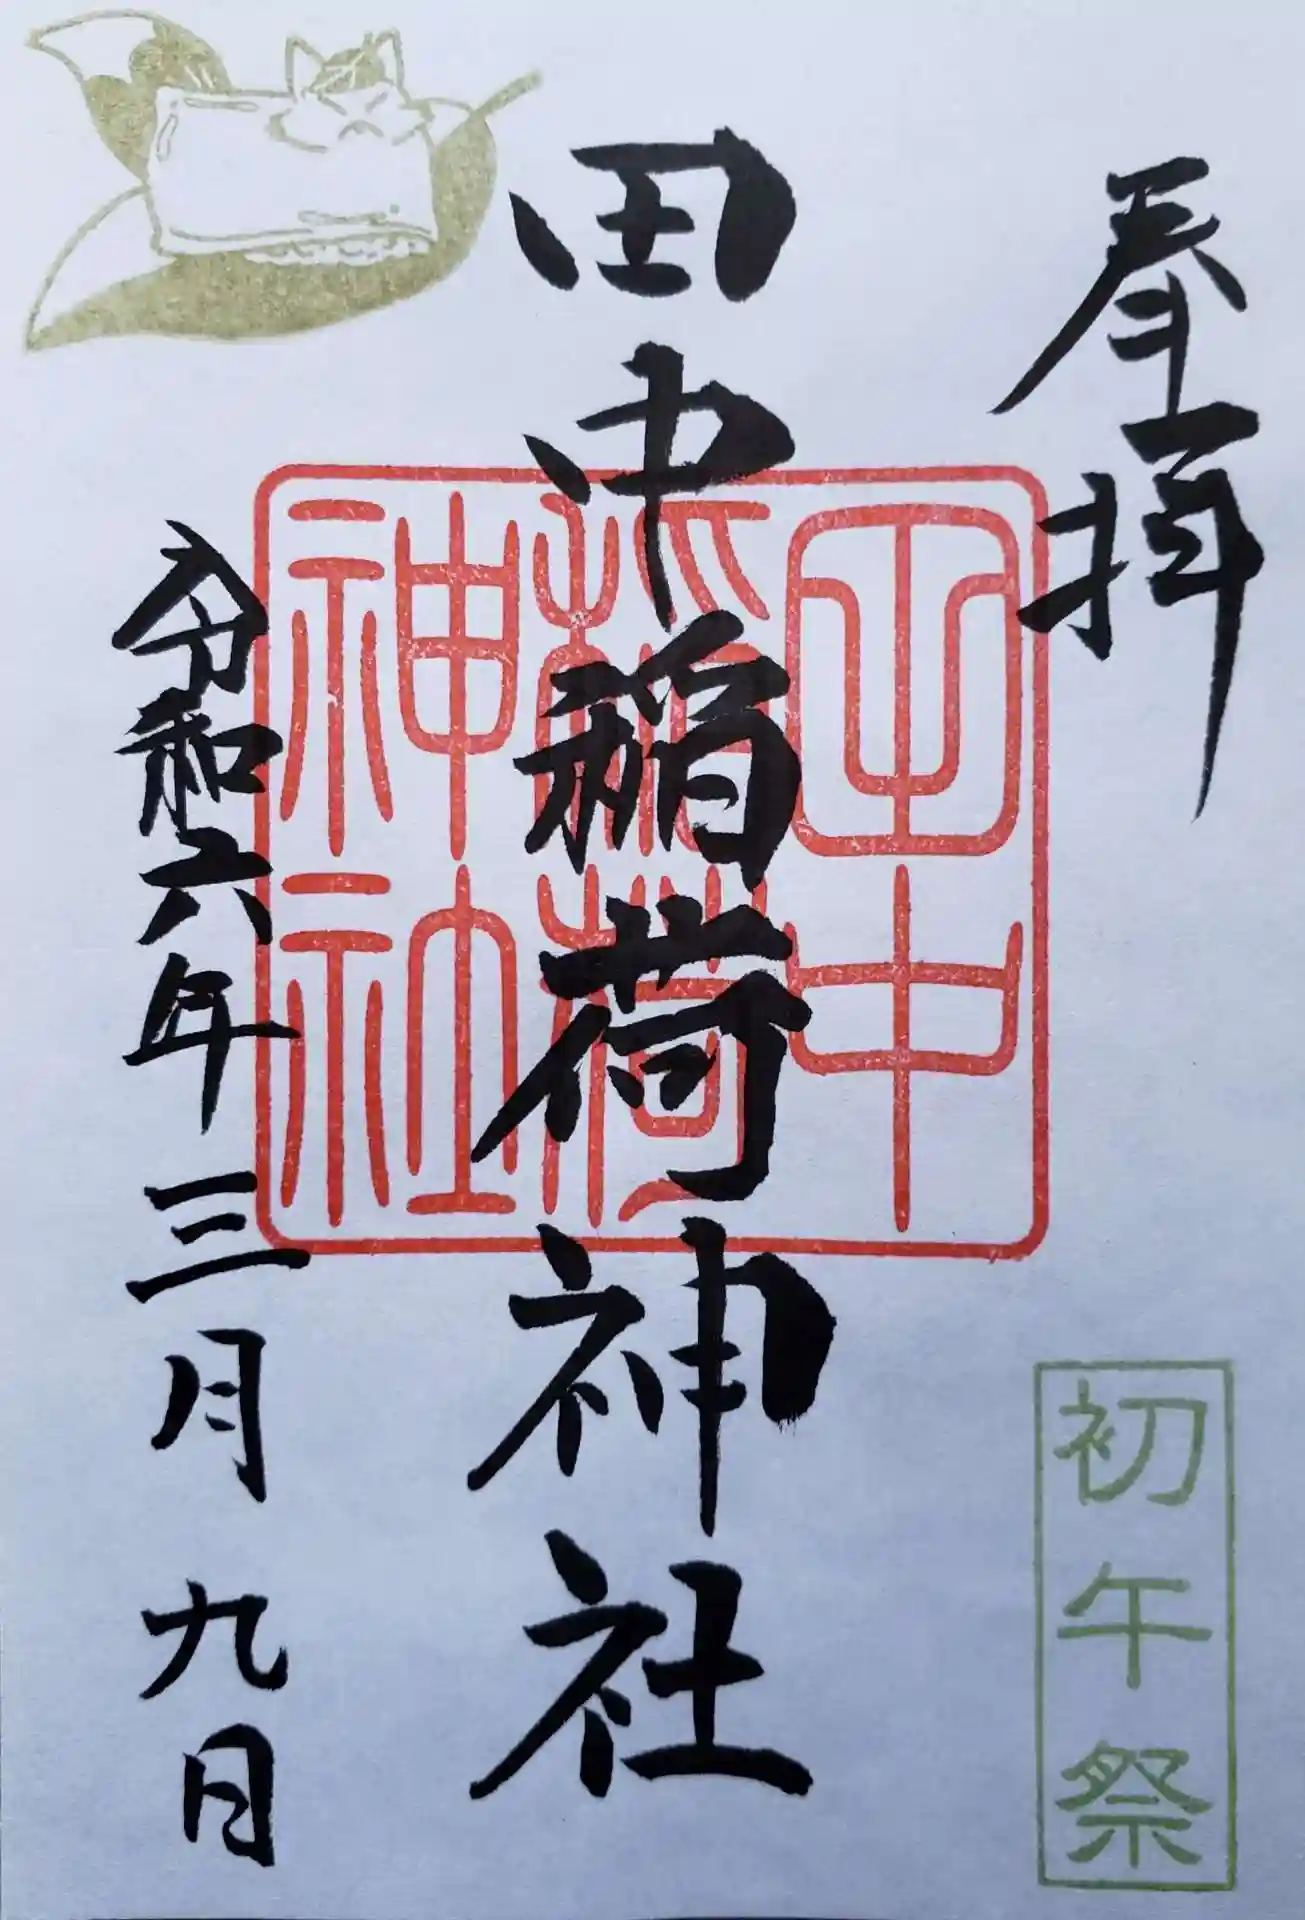 奉拝
初午祭
田中稲荷神社
田中
稲荷
神社
令和六年三月九日